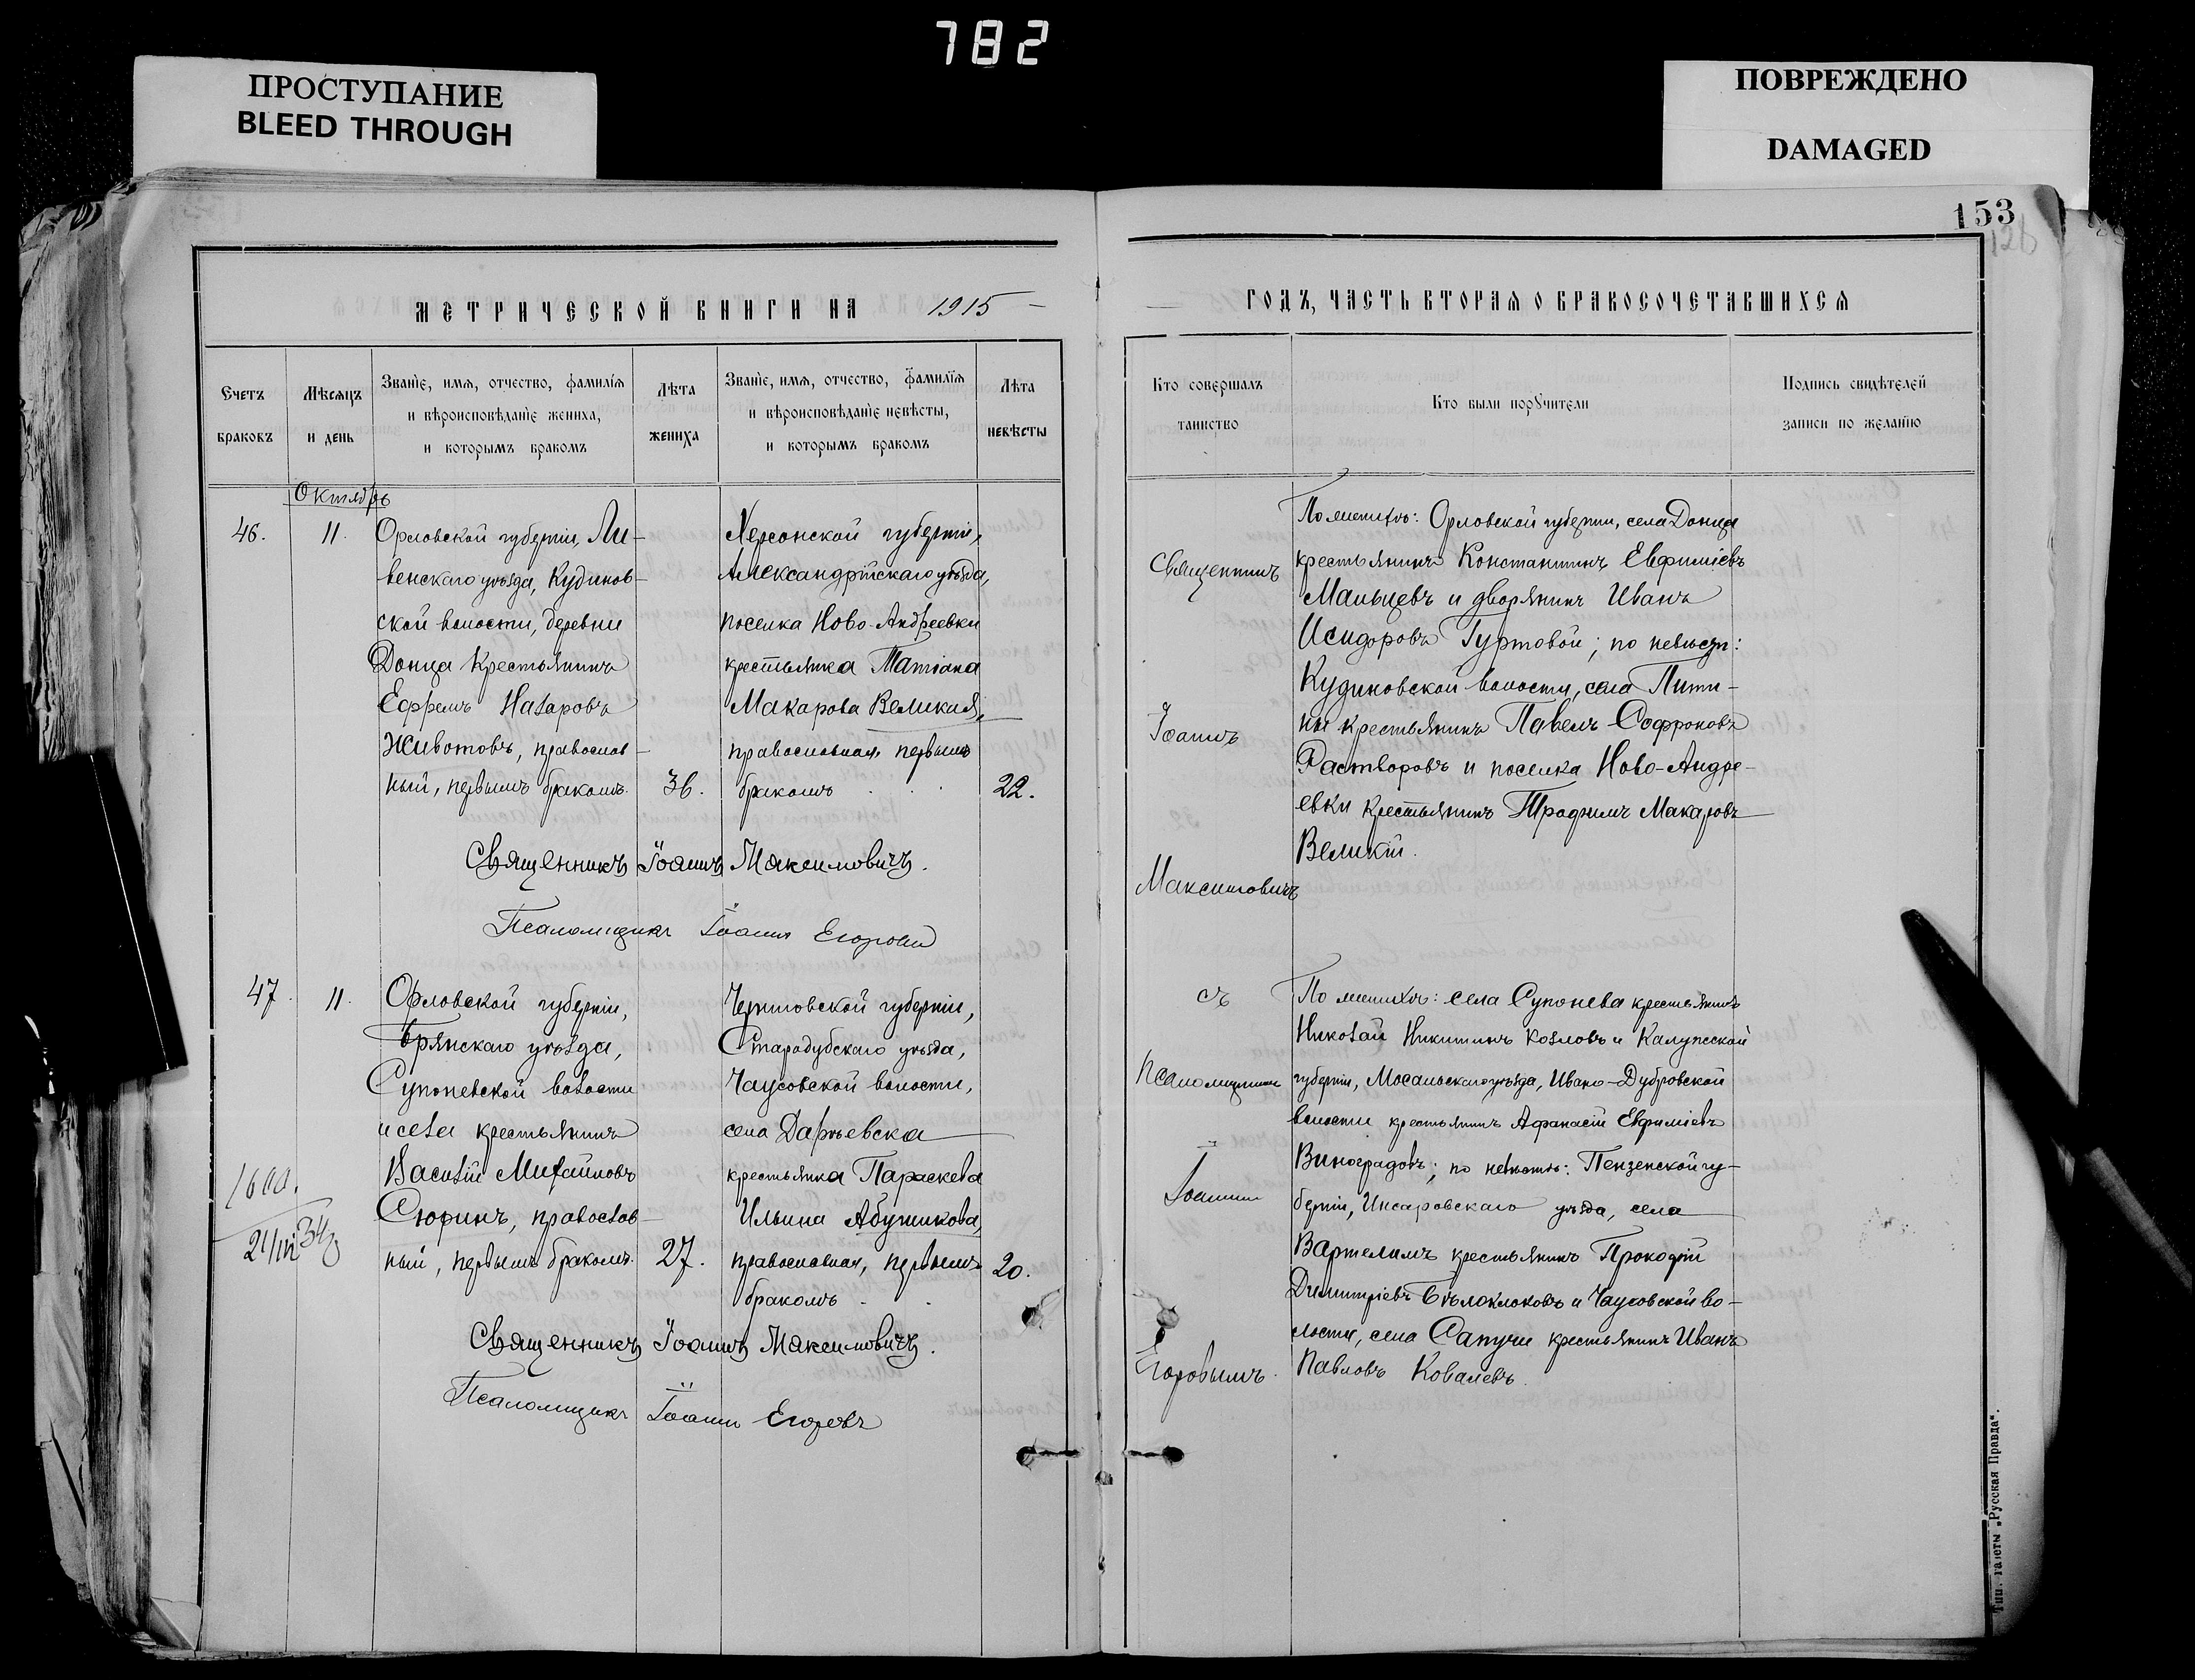 782
ПРОСТУПАНИЕ
BLEED THROUGH
ПОВРЕЖДЕНО
DAMAGED
153
128
МЕТРИЧЕСКОЙ КНИГИ НА 1915
ГОДЪ, ЧАСТЬ ВТОРАЯ О БРАКОСОЧЕТАВШИХСЯ
Счетъ
браковъ
Мѣсяцъ
и день
Званіе, имя, отчество, фамилія
и вѣроисповѣданіе жениха,
и которымъ бракомъ
Лѣта
жениха
Званіе, имя, отчество, фамилія
и вѣроисповѣданіе невѣсты,
и которымъ бракомъ
Лѣта
невѣсты
Кто совершалъ
таинство
Кто были поручители
Подпись свидѣтелей
записи по желанію
Октябрь
46.
11.
Орловской губерніи, Ли-
венскаго уѣзда, Кудинов-
ской волости, деревни
Донца крестьянинъ
Ефремъ Назаровъ
Животовъ, православ-
ный, первымъ бракомъ.
36.
Херсонской губерніи,
Александрійскаго уѣзда,
поселка Ново-Андреевки
крестьянка Татіана
Макарова Великая,
православная, первымъ
бракомъ
22.
Священникъ Іоаннъ Максимовичъ.
Псаломщикъ Іоаннъ Егоровъ
47.
11.
Орловской губерніи,
Брянскаго уѣзда,
Супоневской волости
и села крестьянинъ
Василій Михайловъ
Сюринъ, православ-
ный, первымъ бракомъ.
27.
Черниговской губерніи,
Стародубскаго уѣзда,
Чаусовской волости,
села Дарѣевска
крестьянка Параскева
Ильина Абушикова,
православная, первымъ
бракомъ
20.
Священникъ Іоаннъ Максимовичъ.
Псаломщикъ Іоаннъ Егоровъ
21/III 34
Священникъ
Іоаннъ
Максимовичъ
съ
псаломщикомъ
Іоанномъ
Егоровымъ.
По женихѣ: Орловской губерніи, села Донца
крестьянинъ Константинъ Евфиміевъ
Мальцевъ и дворянинъ Иванъ
Исидоровъ Гуртовой; по невѣстѣ:
Кудиновской волости, села Пити-
ны крестьянинъ Павелъ Софроновъ
Растворовъ и поселка Ново-Андре-
евки крестьянинъ Трофимъ Макаровъ
Великій.
По женихѣ: села Супонева крестьянинъ
Николай Никитинъ Козловъ и Калужской
губерніи, Мосальскаго уѣзда, Ивано-Дубровской
волости крестьянинъ Афанасій Евфиміевъ
Виноградовъ; по невѣстѣ: Пензенской гу-
берніи, Инсаровскаго уѣзда, села
Вартелимъ крестьянинъ Прокофій
Димитріевъ Бѣлоклоковъ и Чаусовской во-
лости, села Сапучи крестьянинъ Иванъ
Павловъ Ковалевъ.
Тип. газеты „Русская Правда“.